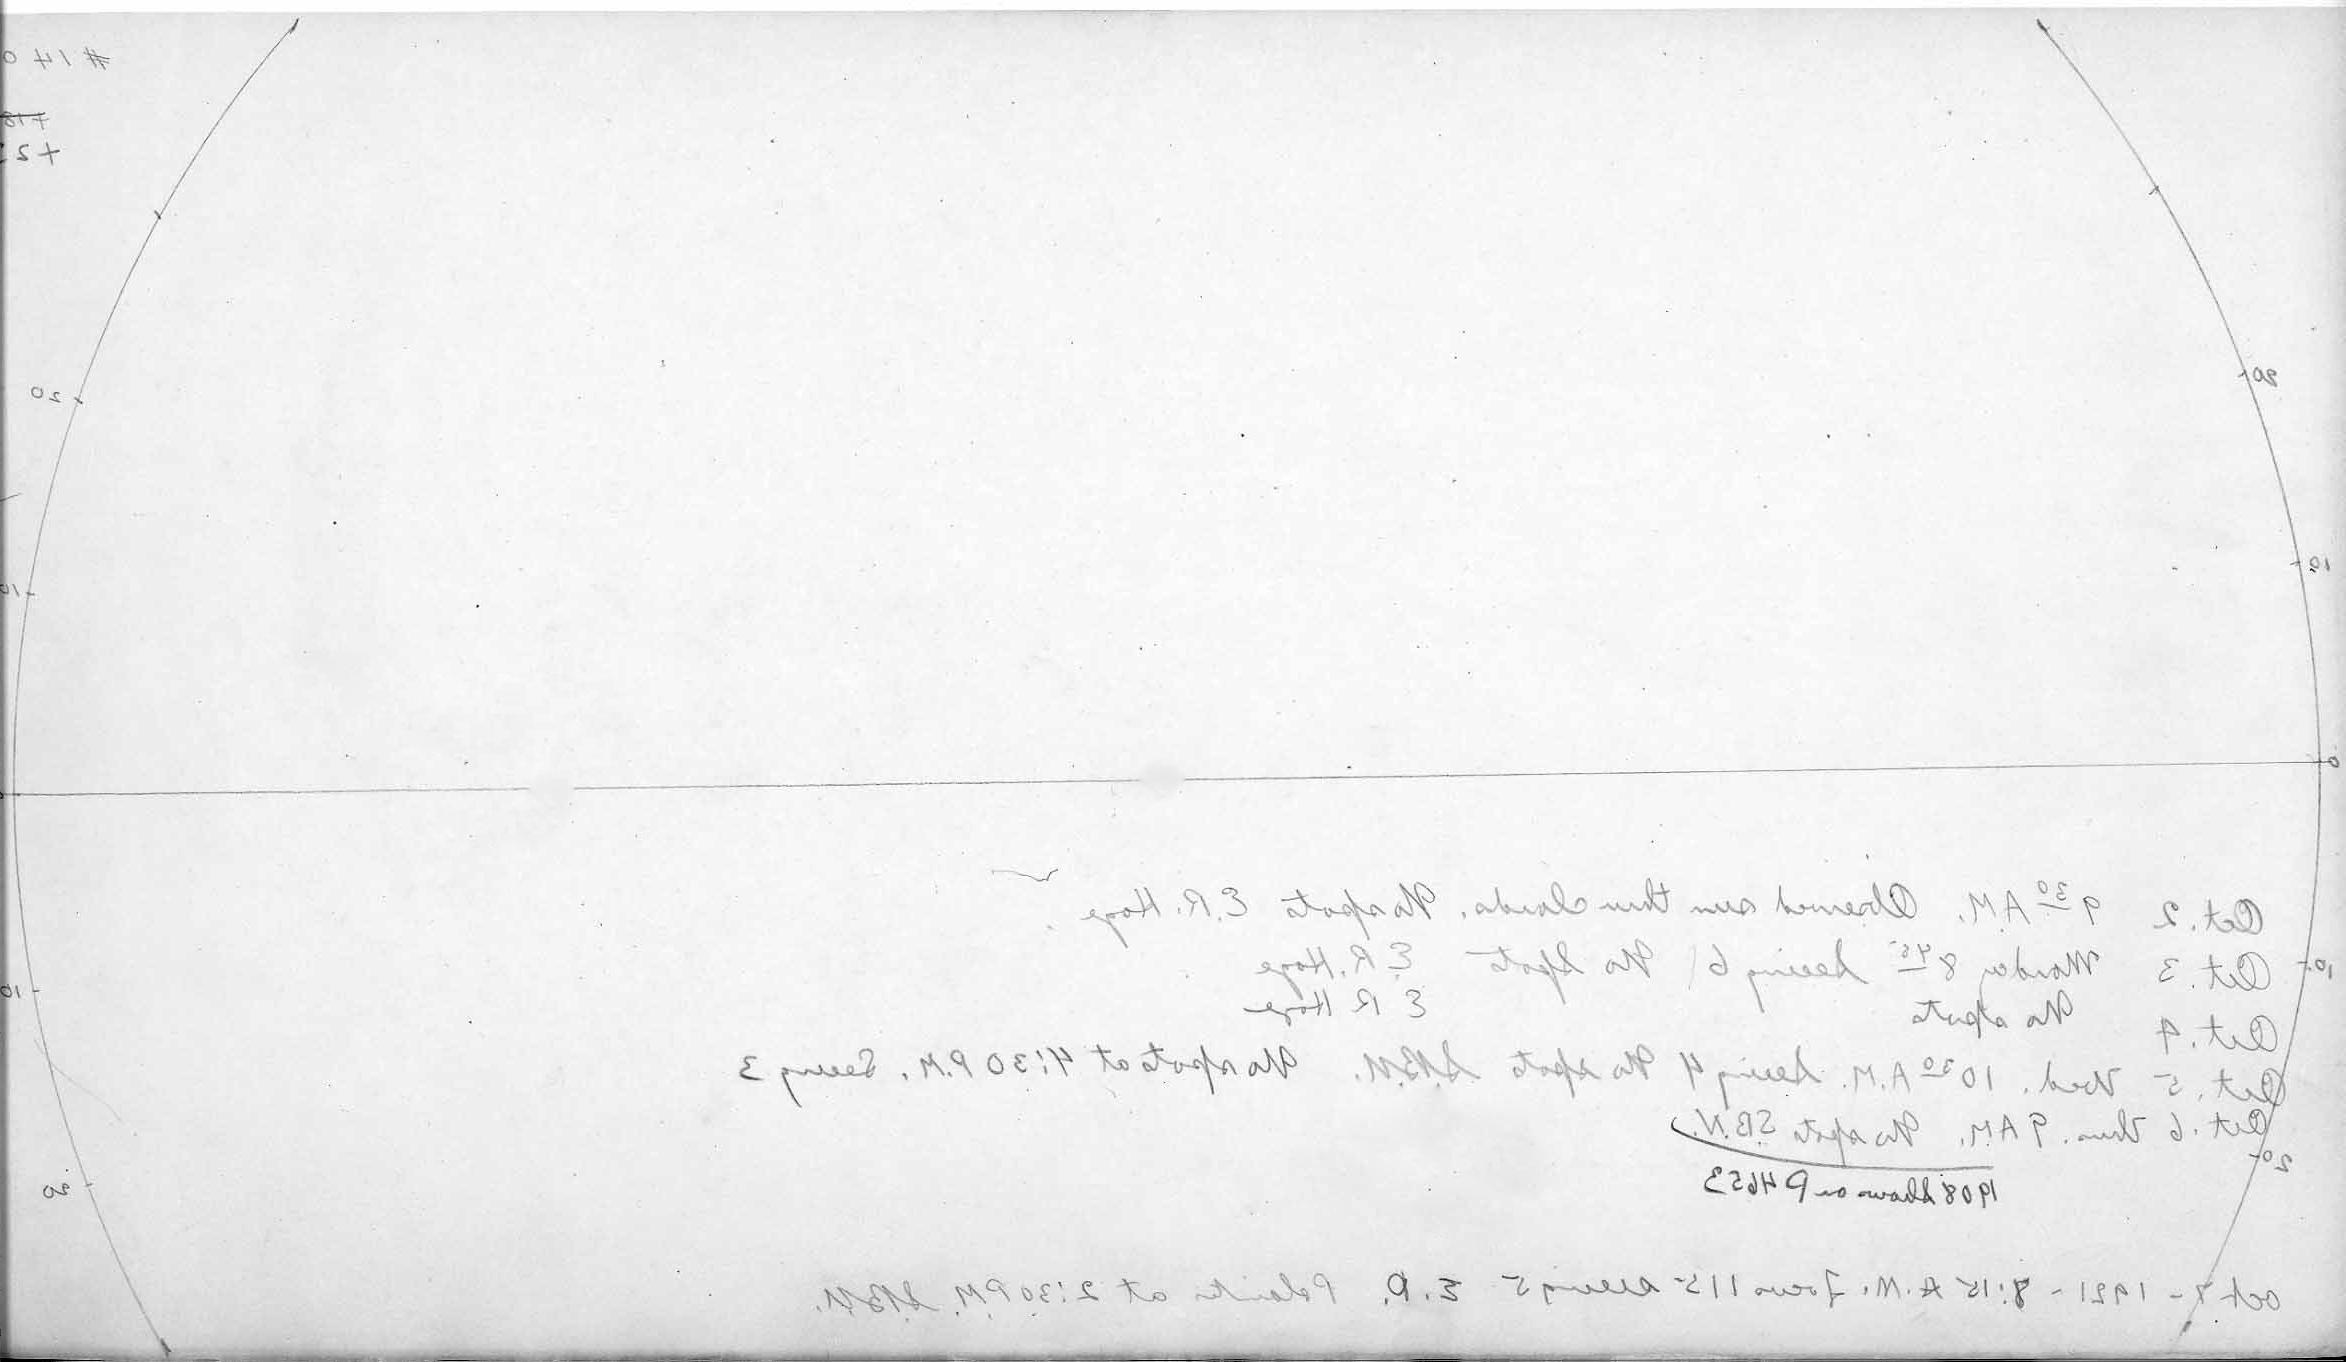 #140
+18
+2
20
20
10
10
0
Oct. 2 9 30 A.M. Observed sun thru clouds. No spots E.R. Hoge
Oct. 3 Monday 8 45 Seeing 6 No Spots E.R. Hoge
10
10
Oct. 4 No spots E R Hoge
Oct. 5 Wed. 10 30 A.M. Seeing 4 No spots S.B.N. No spots at 4:30 P.M. Seeing 3
Oct. 6 Thur. 9 A.M. No spots S.B.N.
20
20
1908 shown on P 4653
Oct 7 - 1921 - 8:15 A.M. Focus 115 seeing 5 E.P. Polarities at 2:30 P.M. S.B.N.